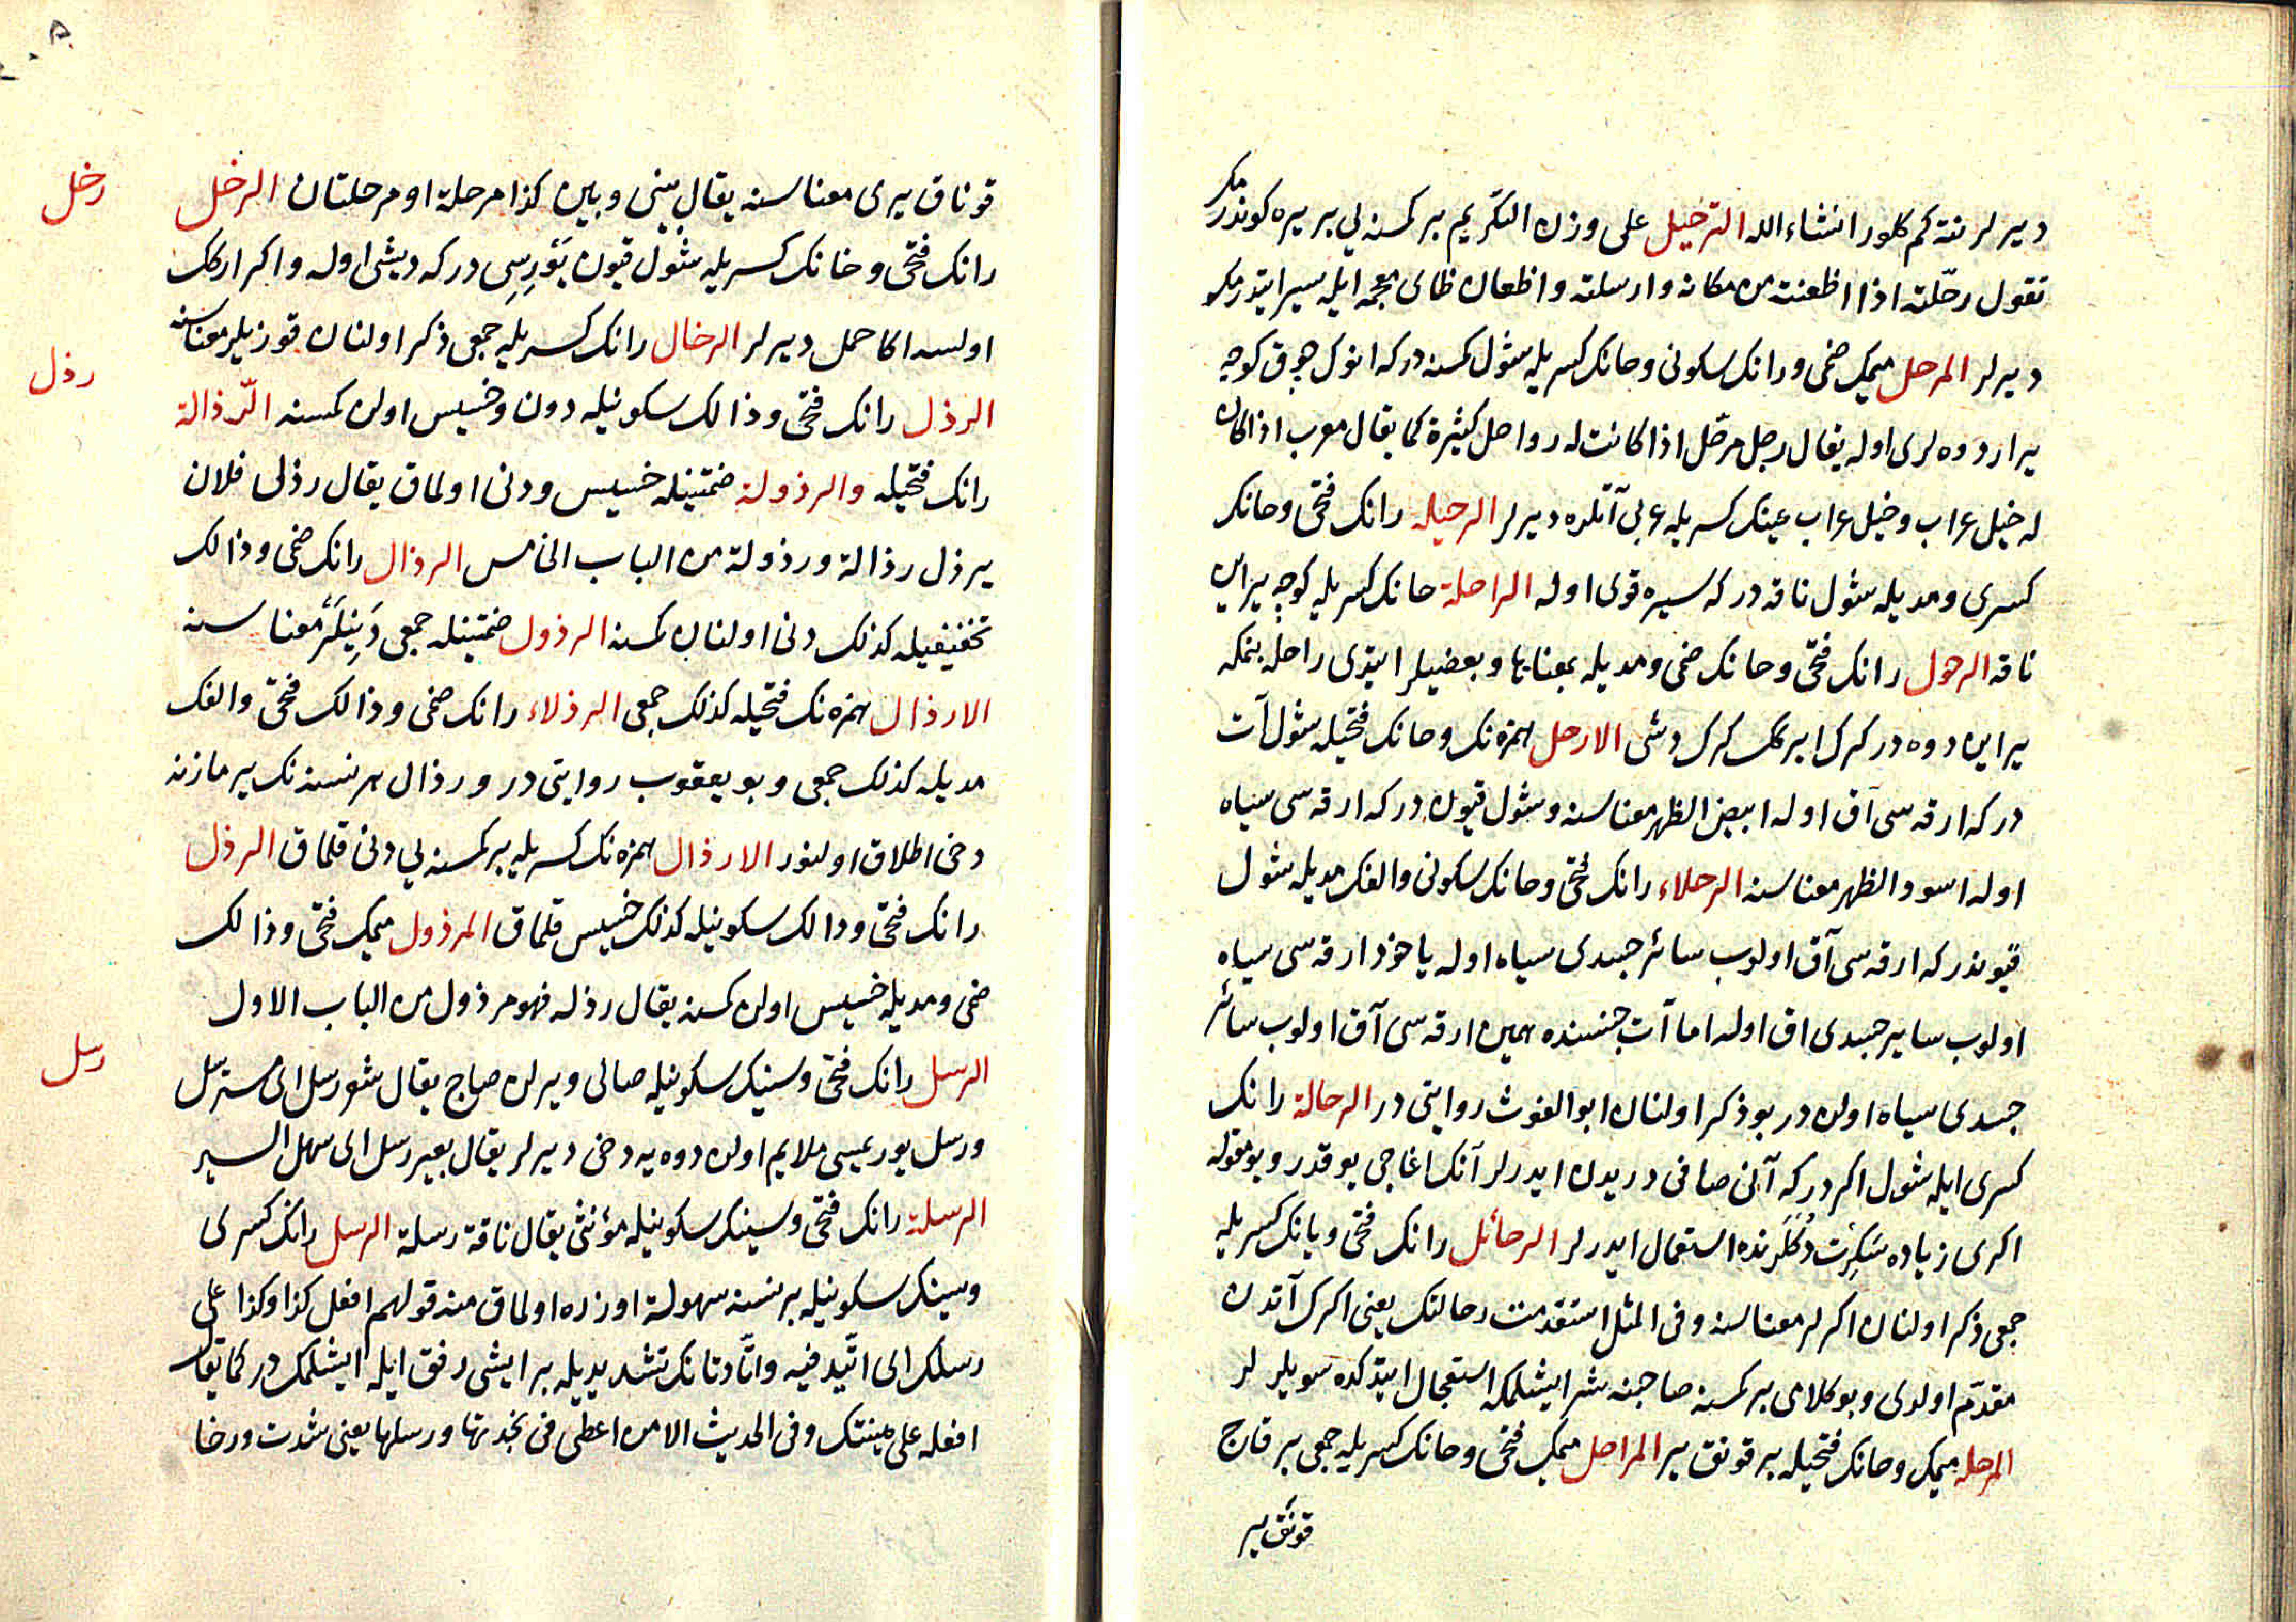 ديرلر نته كم كلور انشاء الله الترحيل على وزن التكريم بر كمسنه يى بر يره كوندرمك
تقول رحّلته اذا اظعنته من مكانه وارسلته واظعان ظاى معجمه ايله سير ايتدرمكه
ديرلر المرحل ميمك ضمى ورانك سكونى وحانك كسريله شول كمسنه دركه انوك چوق كوچه
يرار دوه لرى اوله يقال رجل مرحل اذا كانت له رواحل كثيرة كما يقال معرب اذا كان
له خيل عراب وخيل عراب عينك كسريله عربى آتلره ديرلر الرحيله رانك فتحى وحانك
كسرى ومديله شول ناقه دركه سيره قوى اوله الراحلة حانك كسريله كوچه يراين
ناقه الرحول رانك فتحى وحانك ضمى ومديله بمعناها وبعضيلر ايتدى راحله بنمكه
يراين دوه در كرك ايركك كرك دشى الارحل همزه نك وحانك فتحيله شول آت
دركه ارقه سى آق اوله ابيض الظهر معناسنه وشول قيون دركه ارقه سى سياه
اوله اسود الظهر معناسنه الرحلاء رانك فتحى وحانك سكونى والفك مديله شول
قيوندركه ارقه سى آق اولوب سائر جسدى سياه اوله ياخود ارقه سى سياه
اولوب ساير جسدى اق اوله اما آت جنسنده همين ارقه سى آق اولوب سائر
جسدى سياه اولن در بو ذكر اولنان ابو الغوث روايتى در الرحالة رانك
كسرى ايله شول اكر دركه آنى صافى دريدن ايدرلر آنك اغاجى يوقدر وبو مقوله
اكرى زياده سَكِرْت دُكلرنده استعمال ايدرلر الرحائل رانك فتحى ويانك كسريله
جمعى ذكر اولنان اكرلر معناسنه وفى المثل استقدمت رحالتك يعنى اكرك آتدن
مقدّم اولدى وبو كلامى بر كمسنه صاحبنه شر ايشلمكه استعجال ايتدكده سويلرلر
المرحله ميمك وحانك فتحيله بر قونق ير المراحل ميمك فتحى وحانك كسريله جمعى بر قاچ
قونق ير
قوناق يرى معناسنه يقال بينى وبين كذا مرحلة او مرحلتان الرخل
رخل
رانك فتحى وخانك كسريله شول قيون يَوْرِسِى دركه ديشى اوله واكر اركك
اولسه اكا حمل ديرلر الرخال رانك كسريله جمعى ذكر اولنان قوزيلر معناسنه
رذل
الرذل رانك فتحى وذالك سكونيله دون وخسيس اولن كمسنه الرّذالة
رانك فتحيله والرذولة ضمتينله خسيس ودنى اولماق يقال رذل فلان
يرذل رذالة ورذولة من الباب الخامس الرذال رانك ضمى وذالك
تخفيفيله كذلك دنى اولنان كمسنه الرذول ضمتينله جمعى دَنِيلَرْ معناسنه
الارذال همزه نك فتحيله كذلك جمعى الرذلاء رانك ضمى وذالك فتحى والفك
مديله كذلك جمعى وبو يعقوب روايتى در ورذال هر نسنه نك يرمازنه
دخى اطلاق اولنور الارذال همزه نك كسريله بر كمسنه يى دنى قلماق الرذل
رانك فتحى وذالك سكونيله كذلك خسيس قلماق المرذول ميمك فتحى وذالك
ضمى ومديله خسيس اولن كمسنه يقال رذله فهو مرذول من الباب الاول
رسل
الرسل رانك فتحى وسينك سكونيله صالى ويرلن صاچ يقال شعر رسل اى مسترسل
ورسل يوريميسى ملايم اولن دوه يه دخى ديرلر يقال بعير رسل اى سهل السير
الرسلة رانك فتحى وسينك سكونيله مؤنثى يقال ناقة رسلة الرسل رانك كسرى
وسينك سكونيله بر نسنه سهولة اوزره اولماق منه قولهم افعل كذا وكذا على
رسلك اى اتّئد فيه واتّاد تانك تشديديله بر ايشى رفق ايله ايشلمكدر كما يقال
افعله على هينتك وفى الحديث الا من اعطى فى نجدتها ورسلها يعنى شدت ورخا